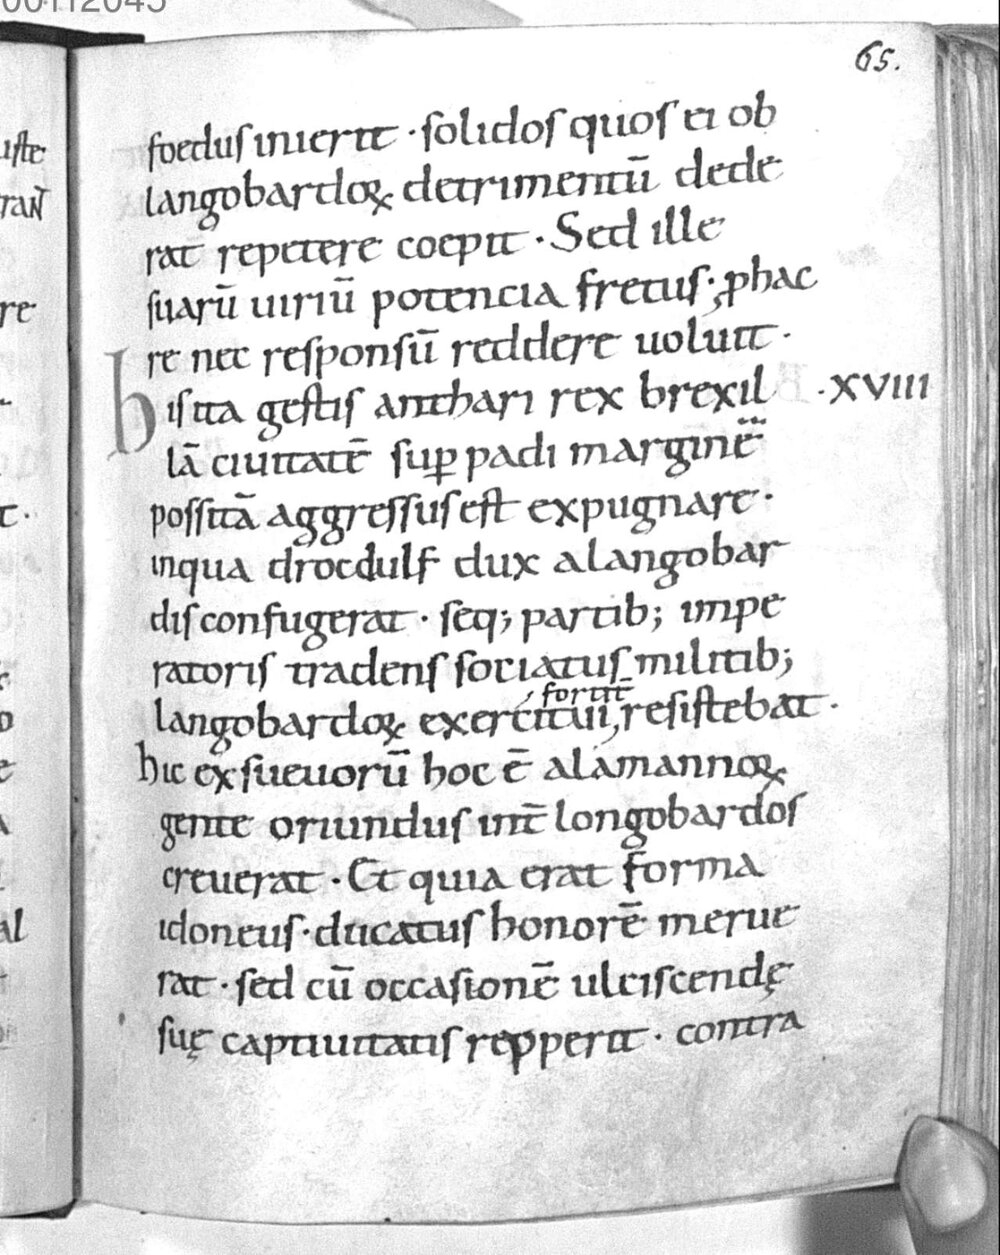 65.
foedus inierit · solidos quos ei ob
langobardoꝝ detrimentū dede
rat repetere coepit · Sed ille
suarū uiriū potencia fretus · ꝓ hac
re nec responsū reddere uoluit ·
his ita gestis anthari rex brexil · XVIII
lā ciuitatē sup̱ padi marginē
possitā aggressus est expugnare ·
inqua drocdulf dux alangobar
dis confugerat · seq; partib; impe
ratoris tradens sociatus militib;
fortit̄
langobardoꝝ exercitui, resistebat ·
hic ex sueuorū hoc ē alamannoꝝ
gente oriundus int̄ longobardos
creuerat · Et quia erat forma
idoneus · ducatus honorē merue
rat · sed cū occasionē ulciscendę
suę captiuitatis repperit · contra